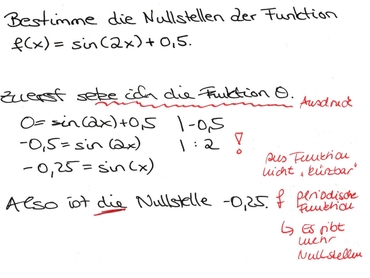 Bestimme die Nullstellen der Funktion
f(x) = sin(2x) + 0,5.
Zuerst setze ich die Funktion 0.
Ausdruck
0 = sin(2x) + 0,5 | -0,5
-0,5 = sin(2x) | : 2 !
-0,25 = sin(x)
aus Funktion
nicht „kürzbar"
Also ist die Nullstelle -0,25. f
periodische
Funktion
↳ Es gibt
mehr
Nullstellen